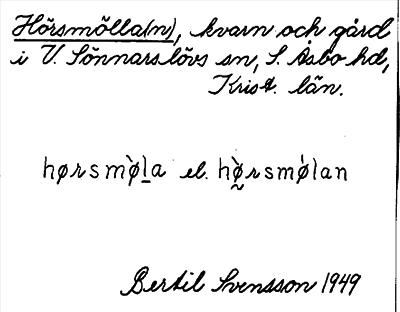 Hörsmölla(n), kvarn och gård
i V. Sönnarslövs sn, S. Åsbo hd,
Krist. län.
hørsmø̀la el. hø̀rsmǿlan
Bertil Svensson 1949